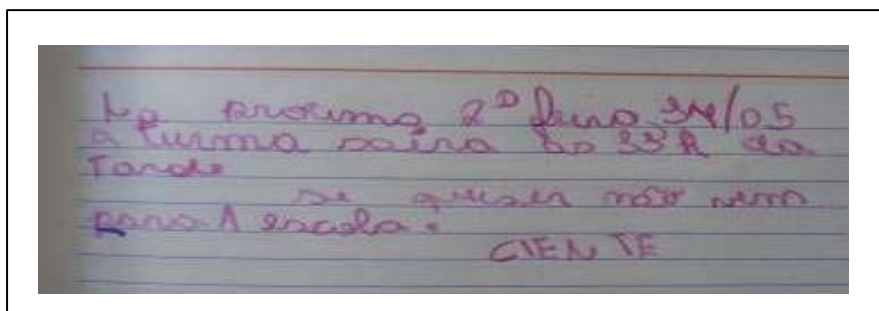 No proximo 2ª feira 34/05
a turma saira às 33 h da
Tarde
se quiser não vem
para A escola.
CIENTE